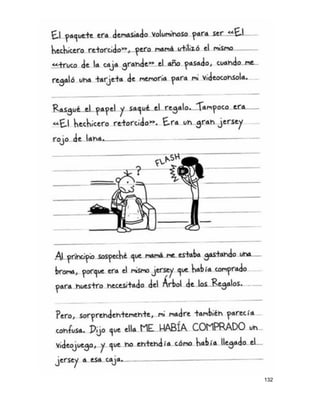 El paquete era demasiado voluminoso para ser «El
hechicero retorcido», pero mamá utilizó el mismo
«truco de la caja grande» el año pasado, cuando me
regaló una tarjeta de memoria para mi videoconsola.
Rasgué el papel y saqué el regalo. Tampoco era
«El hechicero retorcido». Era un gran jersey
rojo de lana.
FLASH
?
Al principio sospeché que mamá me estaba gastando una
broma, porque era el mismo jersey que había comprado
para nuestro necesitado del Árbol de los Regalos.
Pero, sorprendentemente, mi madre también parecía
confusa. Dijo que ella ME HABÍA COMPRADO un
videojuego, y que no entendía cómo había llegado el
jersey a esa caja.
132